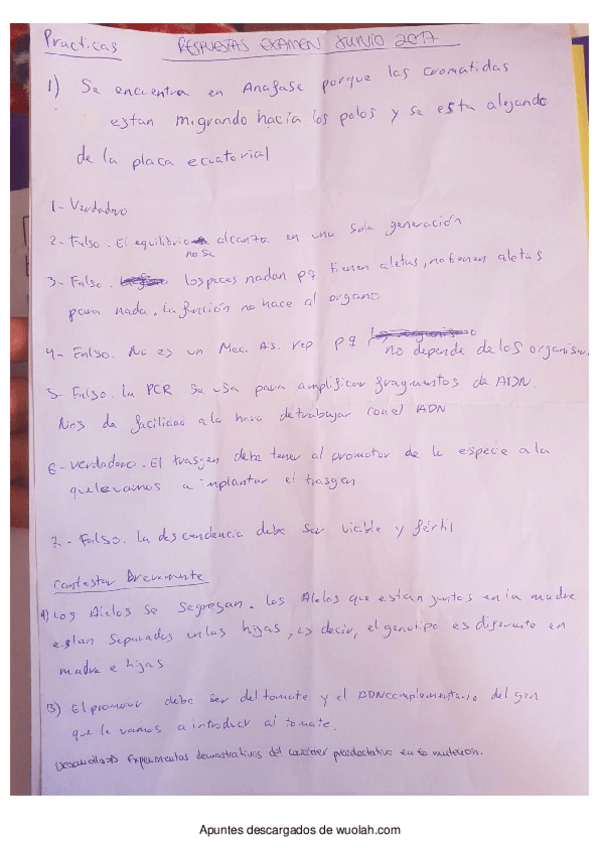 Practicas RESPUESTAS EXAMEN JUNIO 2017
1) Se encuentra en Anafase porque las cromatidas
estan migrando hacia los polos y se esta alejando
de la placa ecuatorial
1- Verdadero
2- Falso. El equilibrio alcanza en una sola generación
no se
3- Falso. los peces nadan pq tienen aletas, no tienen aletas
para nada. La función no hace al organo
4- Falso. No es un Mec. Ais. rep pq
no depende de los organism.
5- Falso. La PCR se usa para amplificar fragmentos de ADN.
Nos da facilidad a la hora de trabajar con el ADN
6- Verdadero. El trasgen debe tener al promotor de la especie a la
que levamos a implantar el trasgen
7- Falso. La descendencia debe ser viable y fértil
Contestar Brevemente
A) Los Alelos se segregan. Los Alelos que estan juntos en la madre
estan separados en las hijas, es decir, el genotipo es diferente en
madre e hijas
B) El promotor debe ser del tomate y el ADN complementario del gen
que le vamos a introducir al tomate.
Desarrollo Experimentos demostrativos del caracter preadaptativo en la mutación.
Apuntes descargados de wuolah.com